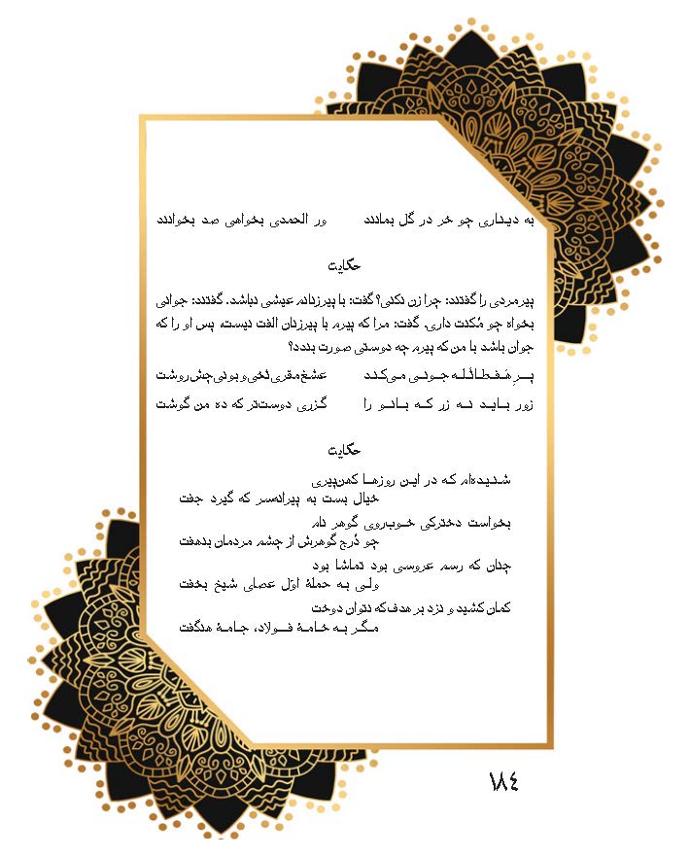 به دیناری چو خر در گل بمانند ور الحمدی بخواهی صد بخوانند
حکایت
پیرمردی را گفتند: چرا زن نکنی؟ گفت: با پیرزنانم عیشی نباشد. گفتند: جوانی
بخواه چو مُکنت داری. گفت: مرا که پیرم با پیرزنان الفت نیست، پس او را که
جوان باشد با من که پیرم چه دوستی صورت بندد؟
پـرِ هَـفـطـاثُـلـه جـونـی مـی‌کـنـد عشغ مقری ثخی و بونی چش روشت
زور بـایـد نـه زر کـه بـانـو را گـزری دوست‌تر که ده من گوشت
حکایت
شـنـیـده‌ام کـه در ایـن روزهـا کهن‌پیری
خیال بست به پیرانه‌سر که گیرد جفت
بخواست دخترکی خـوب‌روی گوهر نام
چو دُرج گوهرش از چشم مردمان بنهفت
چنان که رسم عروسی بود تماشا بود
ولـی بـه حملهٔ اوّل عصای شیخ بخفت
کمان کشید و نزد بر هدف که نتوان دوخت
مـگـر بـه خـامـهٔ فـولاد، جـامـهٔ هنگفت
١٨٤